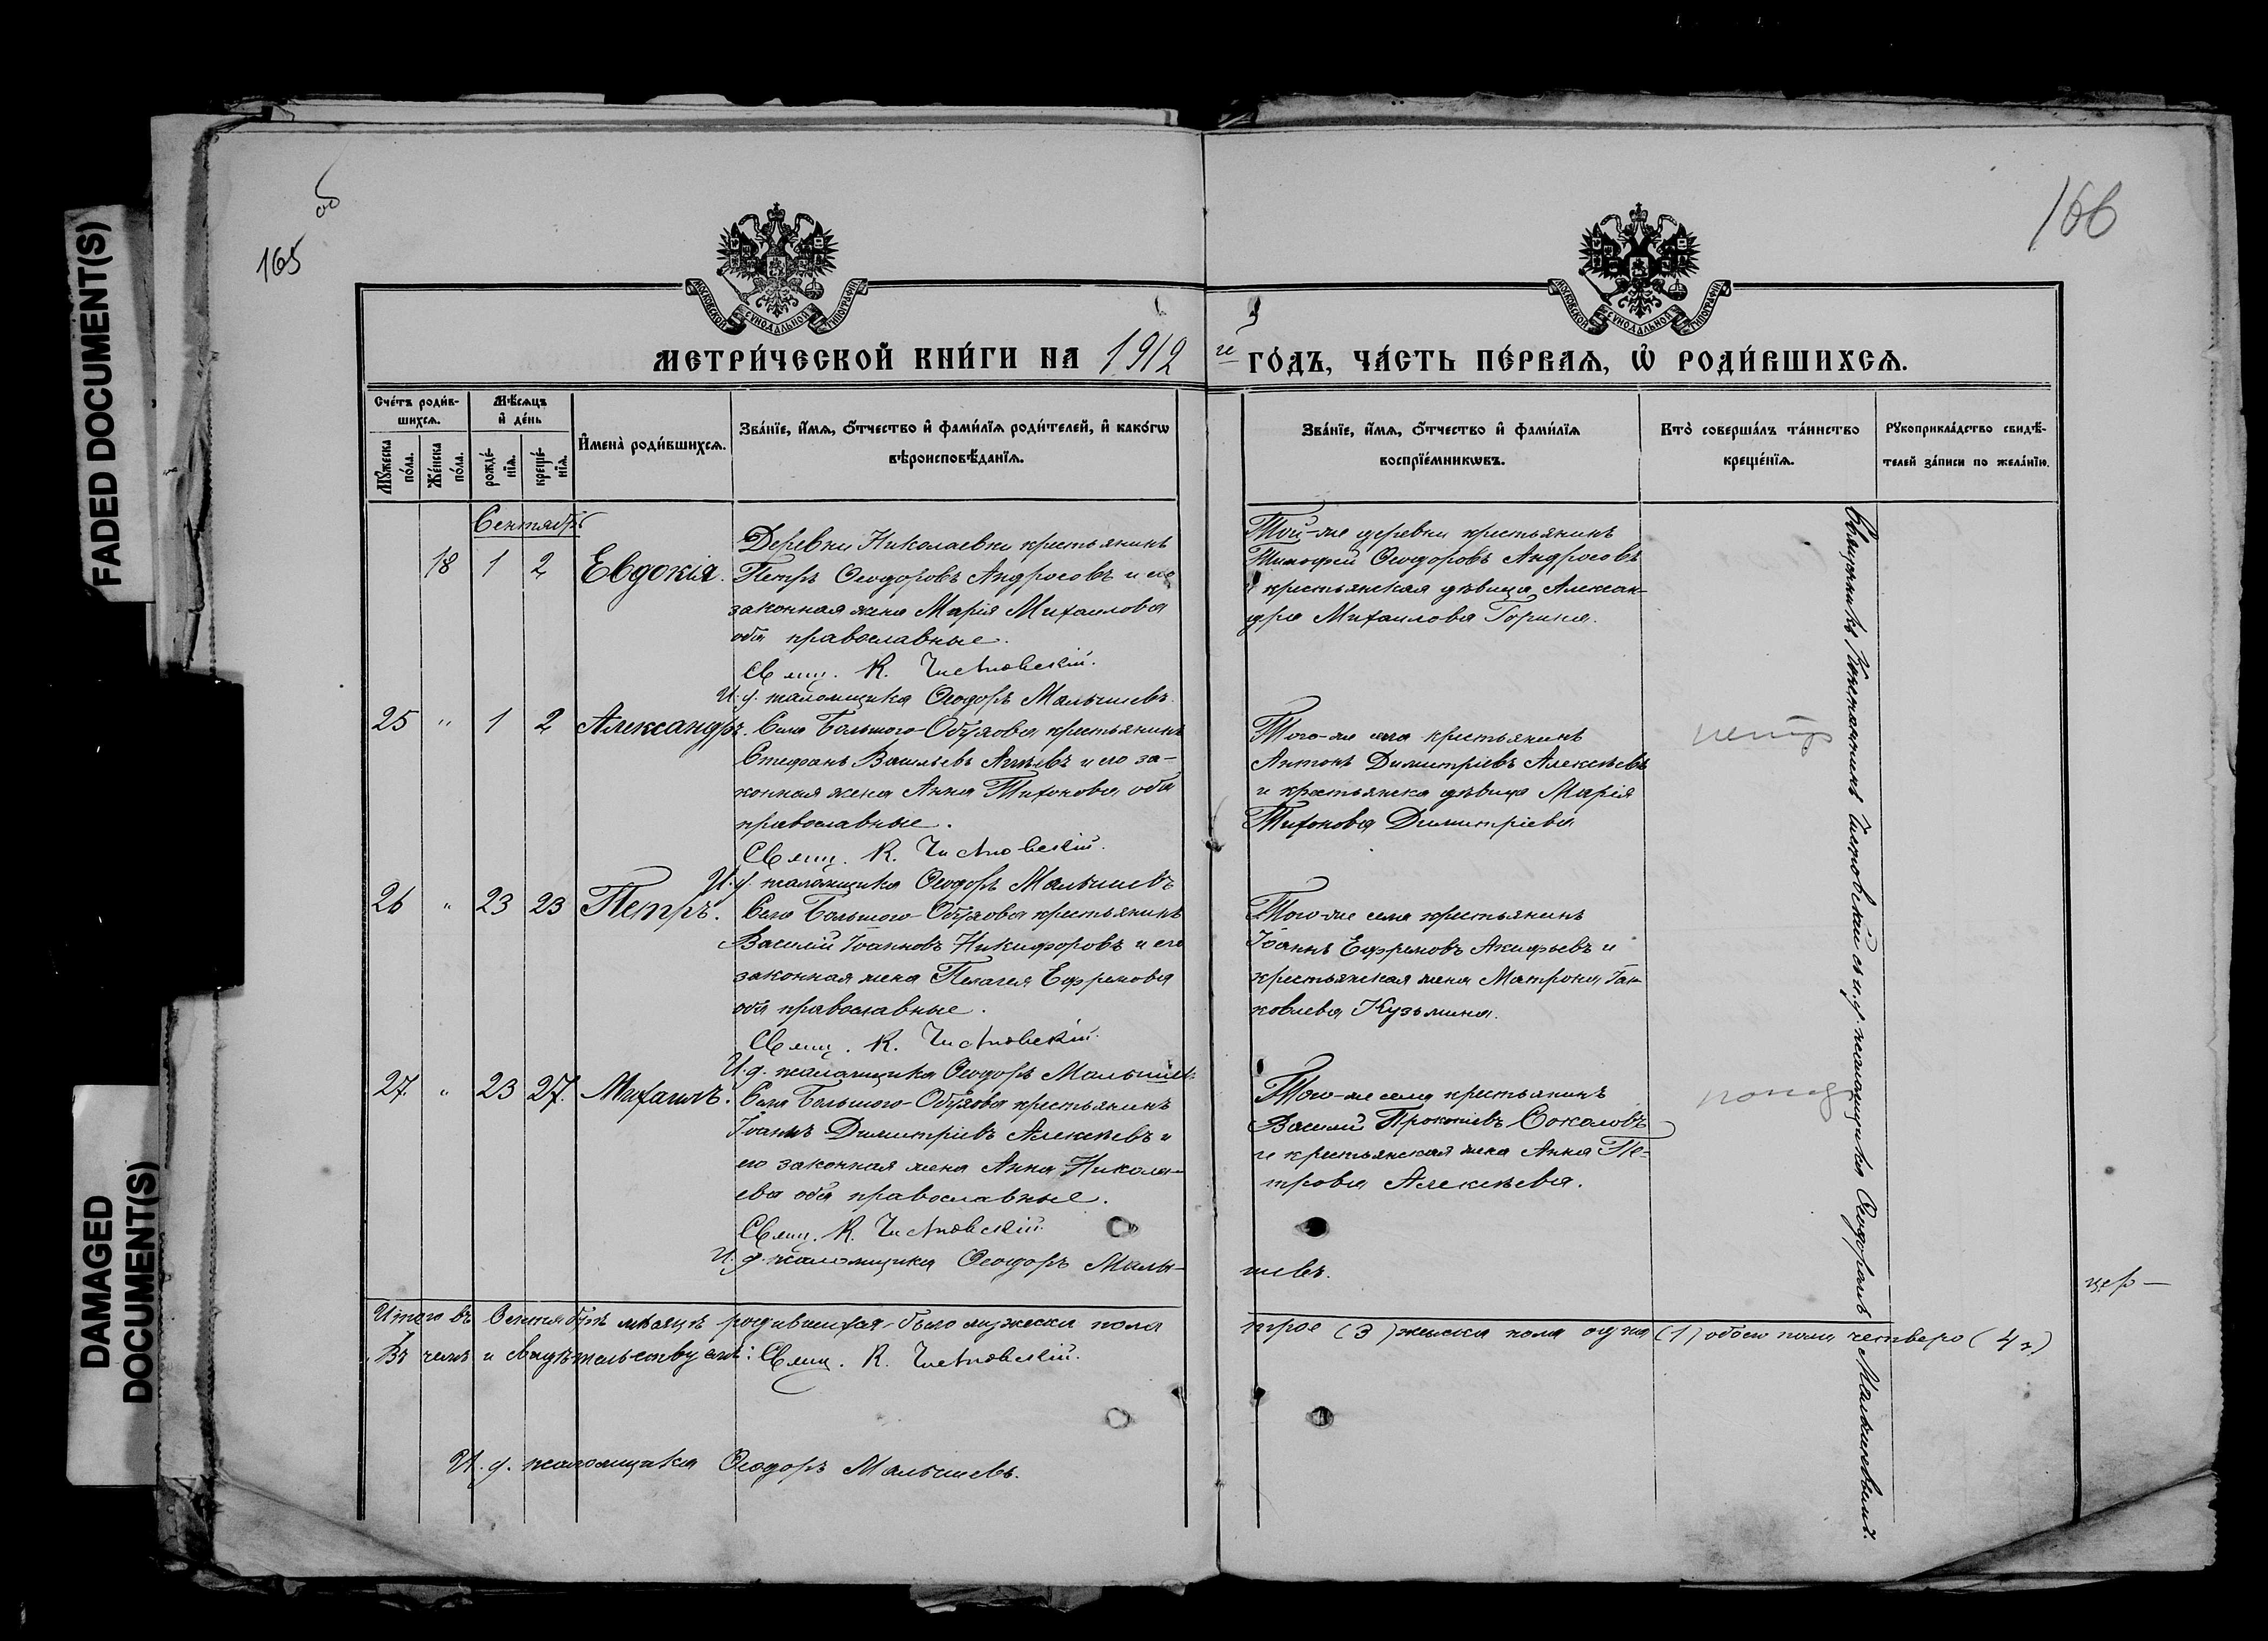 FADED DOCUMENT(S)
DAMAGED DOCUMENT(S)
165
об
166
МОСКОВСКОЙ СѴНОДАЛЬНОЙ ТИПОГРАФІИ
МОСКОВСКОЙ СѴНОДАЛЬНОЙ ТИПОГРАФІИ
МЕТРИ́ЧЕСКОЙ КНИ́ГИ НА 1912 й ГО́ДЪ, ЧА́СТЬ ПЕ́РВАѦ, Ѡ҆ РОДИ́ВШИХСѦ.
Сче́тъ роди́в-
шихсѧ.
Мꙋ́жеска по́ла.
Же́нска по́ла.
Мѣ́сѧцъ
и҆ де́нь
рожде́-
нїѧ.
креще́-
нїѧ.
И҆мена̀ роди́вшихсѧ.
Зва́нїе, и҆́мѧ, ѻ҆́тчество и҆ фами́лїѧ роди́телей, и҆ како́гѡ
вѣроисповѣ́данїѧ.
Зва́нїе, и҆́мѧ, ѻ҆́тчество и҆ фами́лїѧ
воспрїе́мникѡвъ.
Кто̀ соверша́лъ та́инство
креще́нїѧ.
Рꙋкоприкла́дство свидѣ́-
телей за́писи по жела́нїю.
Сентябрь
18 1 2 Евдокія.
Деревни Николаевки крестьянинъ
Петръ Ѳеодоровъ Андросовъ и его
законная жена Марія Михаилова
оба православные.
Свящ. К. Чистовскій.
И. д. псаломщика Ѳеодоръ Малышевъ.
Той-же деревни крестьянинъ
Тимофей Ѳеодоровъ Андросовъ
и крестьянская дѣвица Алексан-
дра Михаилова Горина.
25 " 1 2 Александръ.
Села Большого-Обухова крестьянинъ
Стефанъ Васильевъ и его за-
конная жена Анна Тихонова оба
православные.
Свящ. К. Чистовскій.
И. д. псаломщика Ѳеодоръ Малышевъ
Того-же села крестьянинъ
Антонъ Димитріевъ Алексѣевъ
и крестьянска дѣвица Марія
Тихонова Димитріева
петр
26 " 23 23 Петръ.
Села Большого-Обухова крестьянинъ
Василій Іоанновъ Никифоровъ и его
законная жена Пелагея Ефремова
оба православные.
Свящ. К. Чистовскій.
И. д. псаломщика Ѳеодоръ Малышев
Того-же села крестьянинъ
Іоаннъ Ефремовъ Акифьевъ и
крестьянская жена Матрона Іа-
ковлева Кузьмина.
27. " 23 27. Михаилъ.
Села Большого-Обухова крестьянинъ
Іоаннъ Димитріевъ Алексѣевъ и
его законная жена Анна Никола-
ева оба православные.
Свящ. К. Чистовскій.
И. д. псаломщика Ѳеодоръ Малы-
Того-же села крестьянинъ
Василій Прокопіевъ Соколовъ
и крестьянская жена Анна Пе-
трова Алексѣева.
шевъ.
Священникъ Константинъ Чистовскій съ и. д. псаломщика Ѳеодоромъ Малышевымъ.
цер—
Итого въ Сентябрѣ мѣсяцѣ родившихся было мужеска пола трое (3) женска пола одна (1) обоего пола четверо (4)
Въ чемъ и свидѣтельствуемъ: Свящ. К. Чистовскій.
И. д. псаломщика Ѳеодоръ Малышевъ.